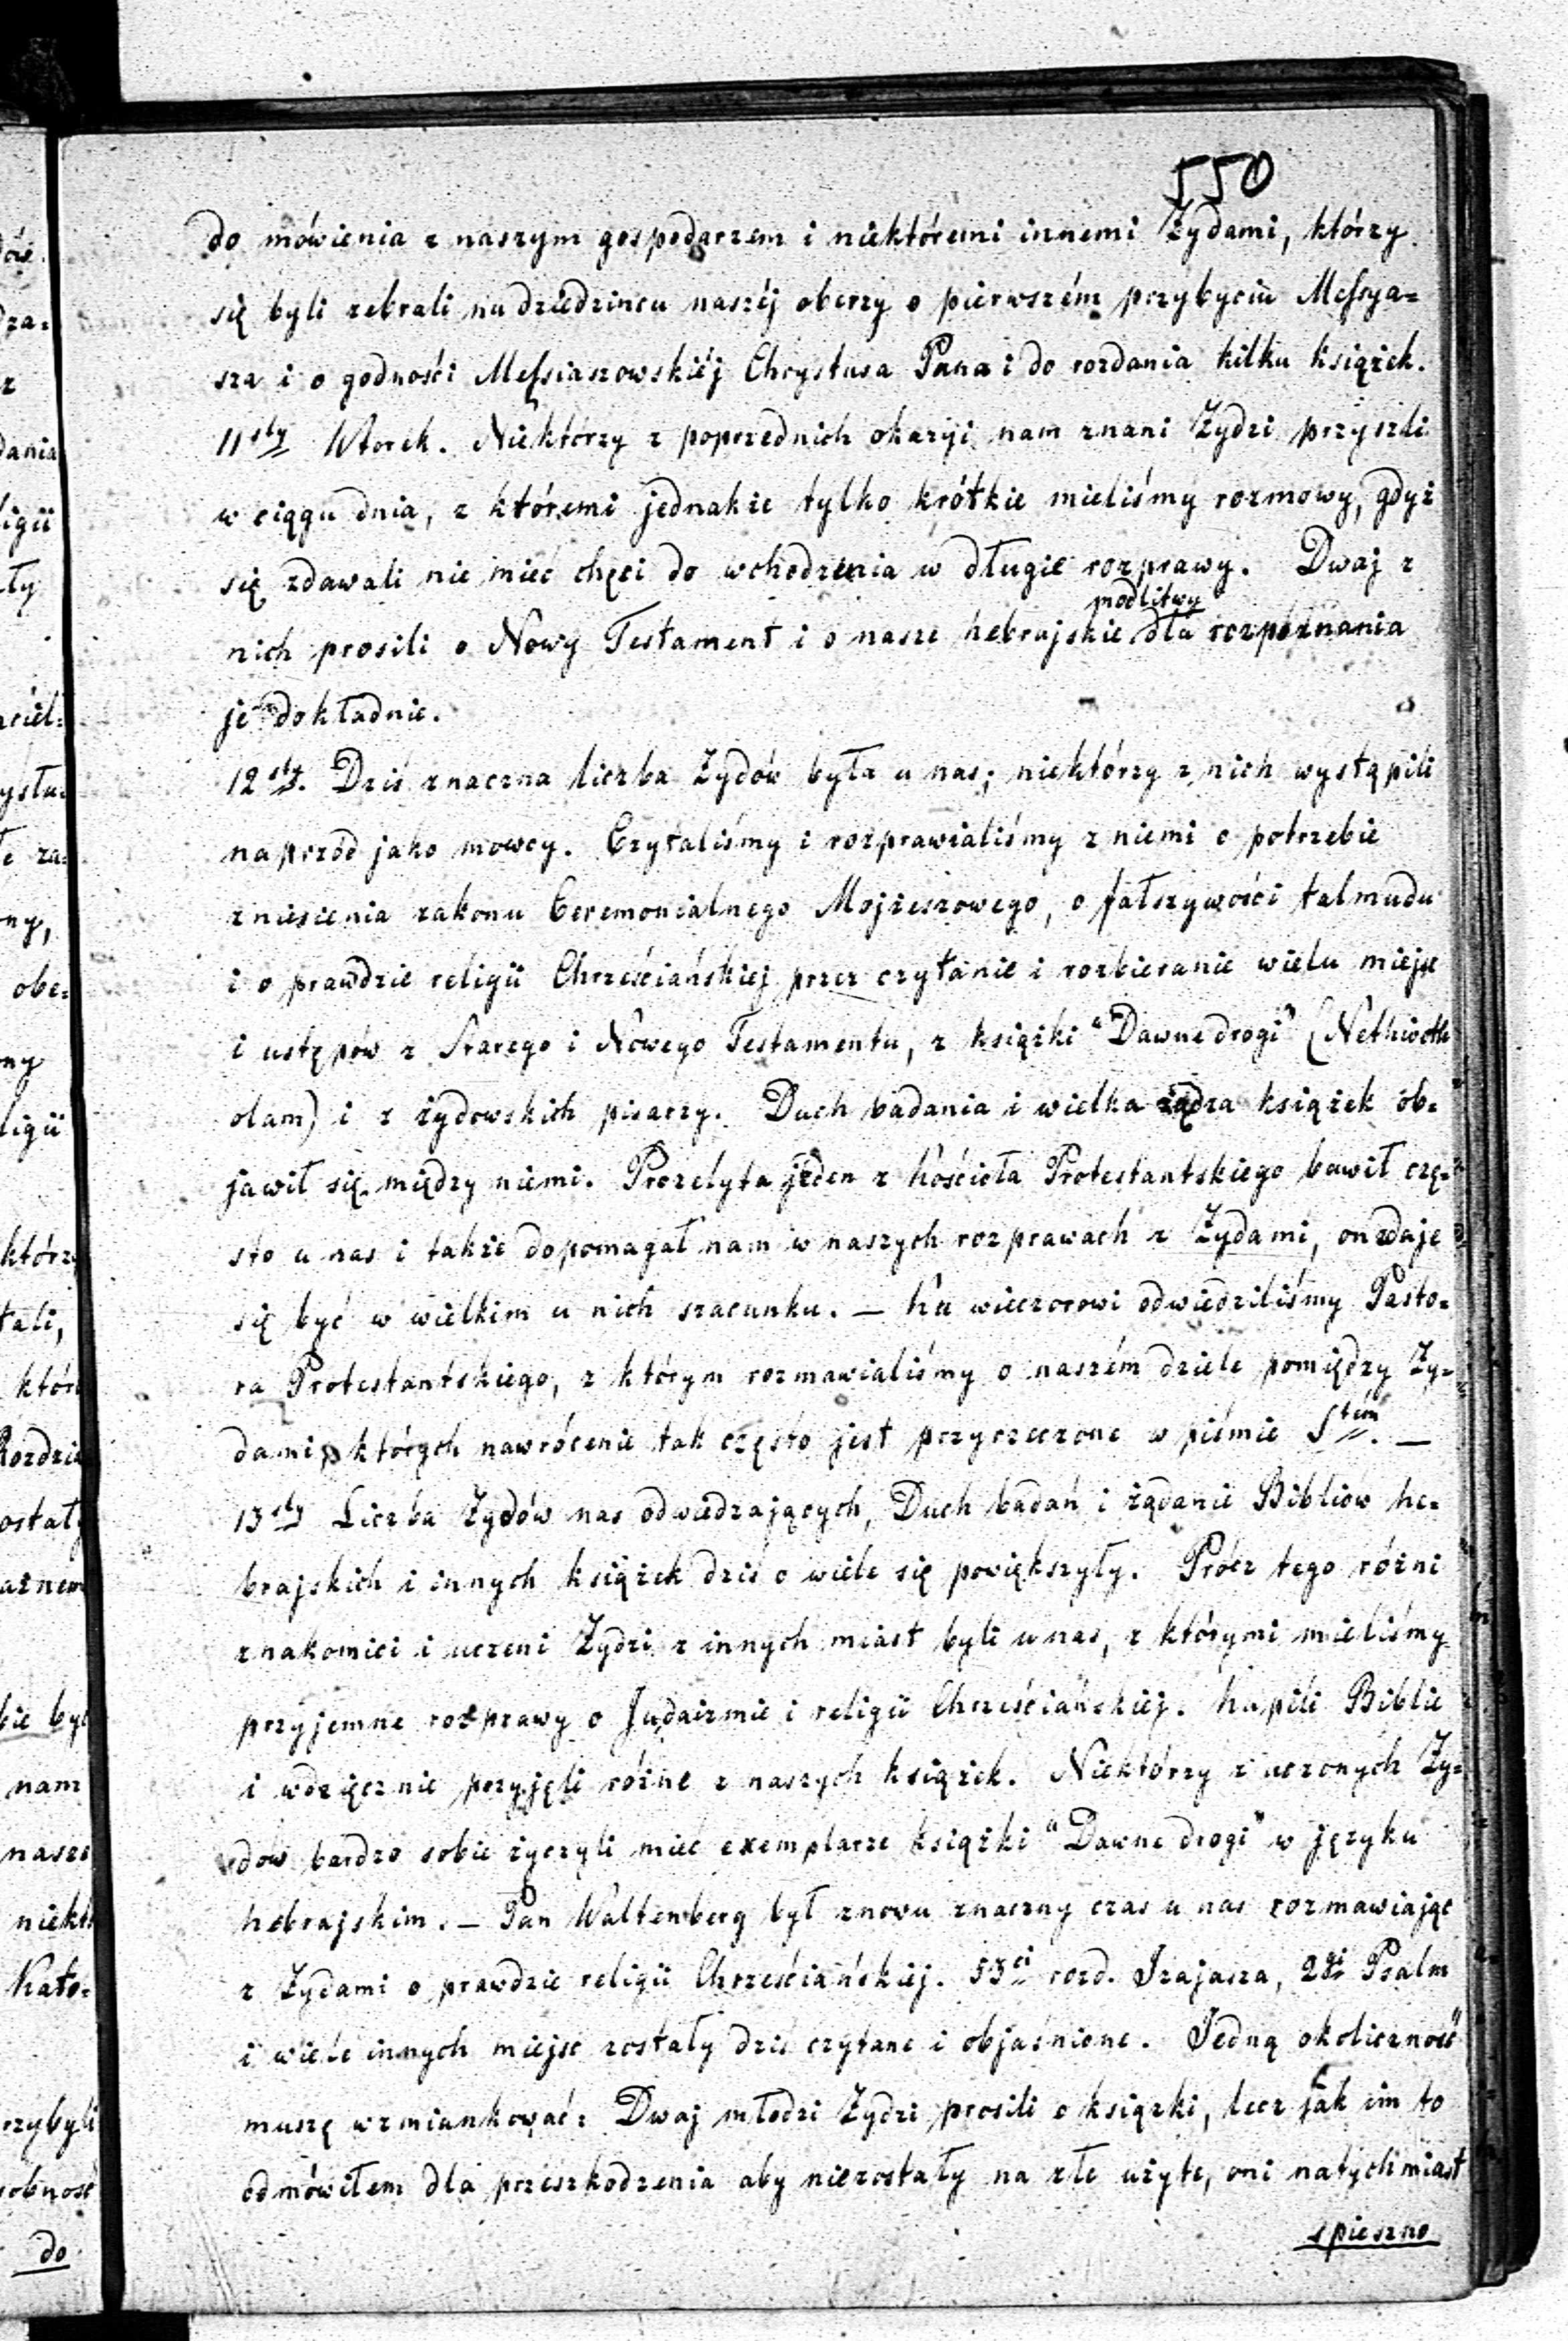 550
do mówienia z naszym gospodarzem i niektóremi innemi Żydami, którzy
się byli zebrali na dziedzincu naszéj oberzy o pierwszém przybyciu Messya=
sza i o godności Messiaszowskiéj Chrystusa Pana i do rozdania kilku książek.
11sty Wtorek. Niektórzy z poprzednich okazyi nam znani Żydzi przyszli
w ciągu dnia, z któremi jednakże tylko krótkie mieliśmy rozmowy, gdyż
się zdawali nie mieć chęci do wchodzenia w długie rozprawy. Dwaj z
modlitwy
nich prosili o Nowy Testament i o nasze hebrajskie dla rozpoznania
je dokładnie.
12sty. Dziś znaczna liczba Żydów była u nas; niektórzy z nich wystąpili
naprzód jako mowcy. Czytaliśmy i rozprawialiśmy z niemi o potrzebie
zniesienia zakonu Ceremonialnego Mojżeszowego, o fałszywości talmudu
i o prawdzie religii Chrześciańskiej przez czytanie i rozbieranie wielu miejsc
i ustępów z Starego i Nowego Testamentu, z książki "Dawne drogi" (Nethiwoth
olam) i z żydowskich pisarzy. Duch badania i wielka żądza książek ob=
jawił się między niemi. Prozelyta jeden z Kościoła Protestantskiego bawił czę=
sto u nas i także dopomagał nam w naszych rozprawach z Żydami, on zdaje
się być w wielkim u nich szacunku. — Ku wieczorowi odwiedziliśmy Pasto=
ra Protestantskiego, z którym rozmawialiśmy o naszém dziele pomiędzy Ży=
dami, których nawrócenie tak często jest przyrzeczone w piśmie Stém. —
13sty Liczba Żydów nas odwiedzających, Duch badań i żądanie Bibliów he=
brajskich i innych książek dziś o wiele się powiększyły. Prócz tego różni
znakomici i uczeni Żydzi z innych miast byli u nas, z którymi mieliśmy
przyjemne rozprawy o Judaizmie i religii Chrześciańskiej. Kupili Biblie
i wdzięcznie przyjęli różne z naszych książek. Niektórzy z uczonych Ży=
dów bardzo sobie życzyli miec exemplarze książki "Dawne drogi" w języku
hebrajskim. — Pan Waltenberg był znowu znaczny czas u nas rozmawiając
z Żydami o prawdzie religii Chrześciańskiej. 53ci rozd. Izajasza, 2gi Psalm
i wiele innych miejsc zostały dziś czytane i objaśnione. Jedną okoliczność
muszę wzmiankować: Dwaj młodzi Żydzi prosili o książki, lecz jak im to
odmówiłem dla przeszkodzenia aby niezostały na złe użyte, oni natychmiast
spieszno